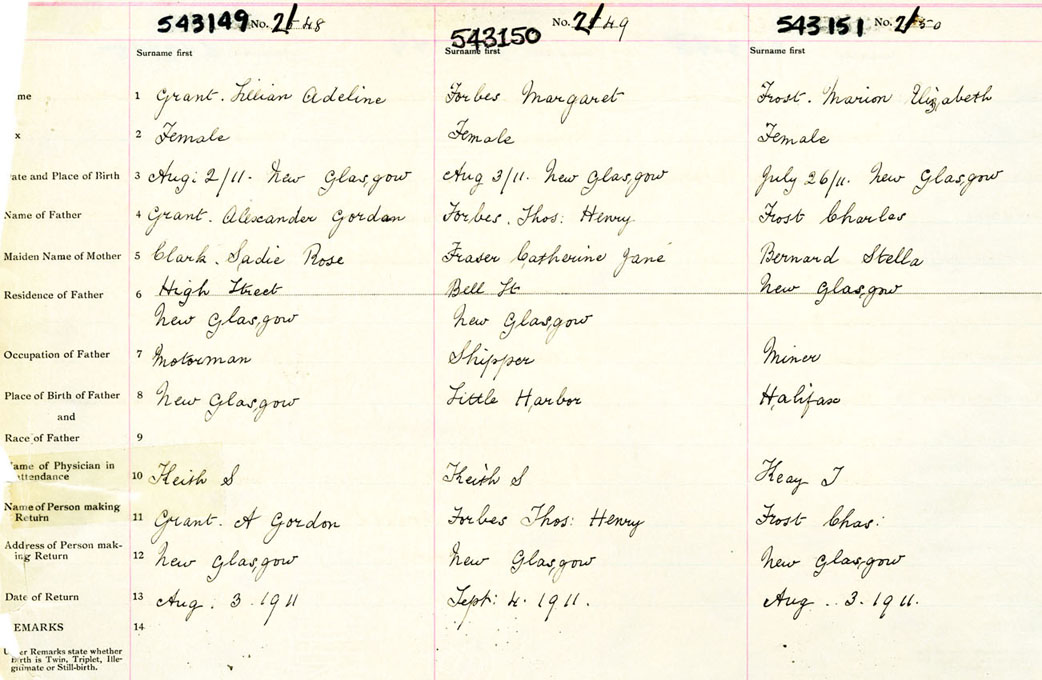 543149 No. 2148
543150 No. 2149
543151 No. 2150
Surname first Surname first Surname first
me 1 Grant. Lillian Adeline Forbes Margaret Frost. Marion Elizabeth
x 2 Female Female Female
ate and Place of Birth 3 Aug: 2/11. New Glasgow Aug 3/11. New Glasgow July 26/11. New Glasgow
Name of Father 4 Grant. Alexander Gordan Forbes. Thos: Henry Frost Charles
Maiden Name of Mother 5 Clark. Sadie Rose Fraser Catherine Jane Bernard Stella
Residence of Father 6 High Street Bell St New Glasgow
New Glasgow New Glasgow
Occupation of Father 7 Motorman Shipper Miner
Place of Birth of Father 8 New Glasgow Little Harbor Halifax
and
Race of Father 9
ame of Physician in
attendance 10 Keith S Keith S Keay T
Name of Person making
Return 11 Grant. A Gordon Forbes Thos: Henry Frost Chas:
Address of Person mak-
ing Return 12 New Glasgow New Glasgow New Glasgow
Date of Return 13 Aug. 3. 1911 Sept: 4. 1911. Aug. 3. 1911.
EMARKS 14
Under Remarks state whether
Birth is Twin, Triplet, Ille-
gitimate or Still-birth.